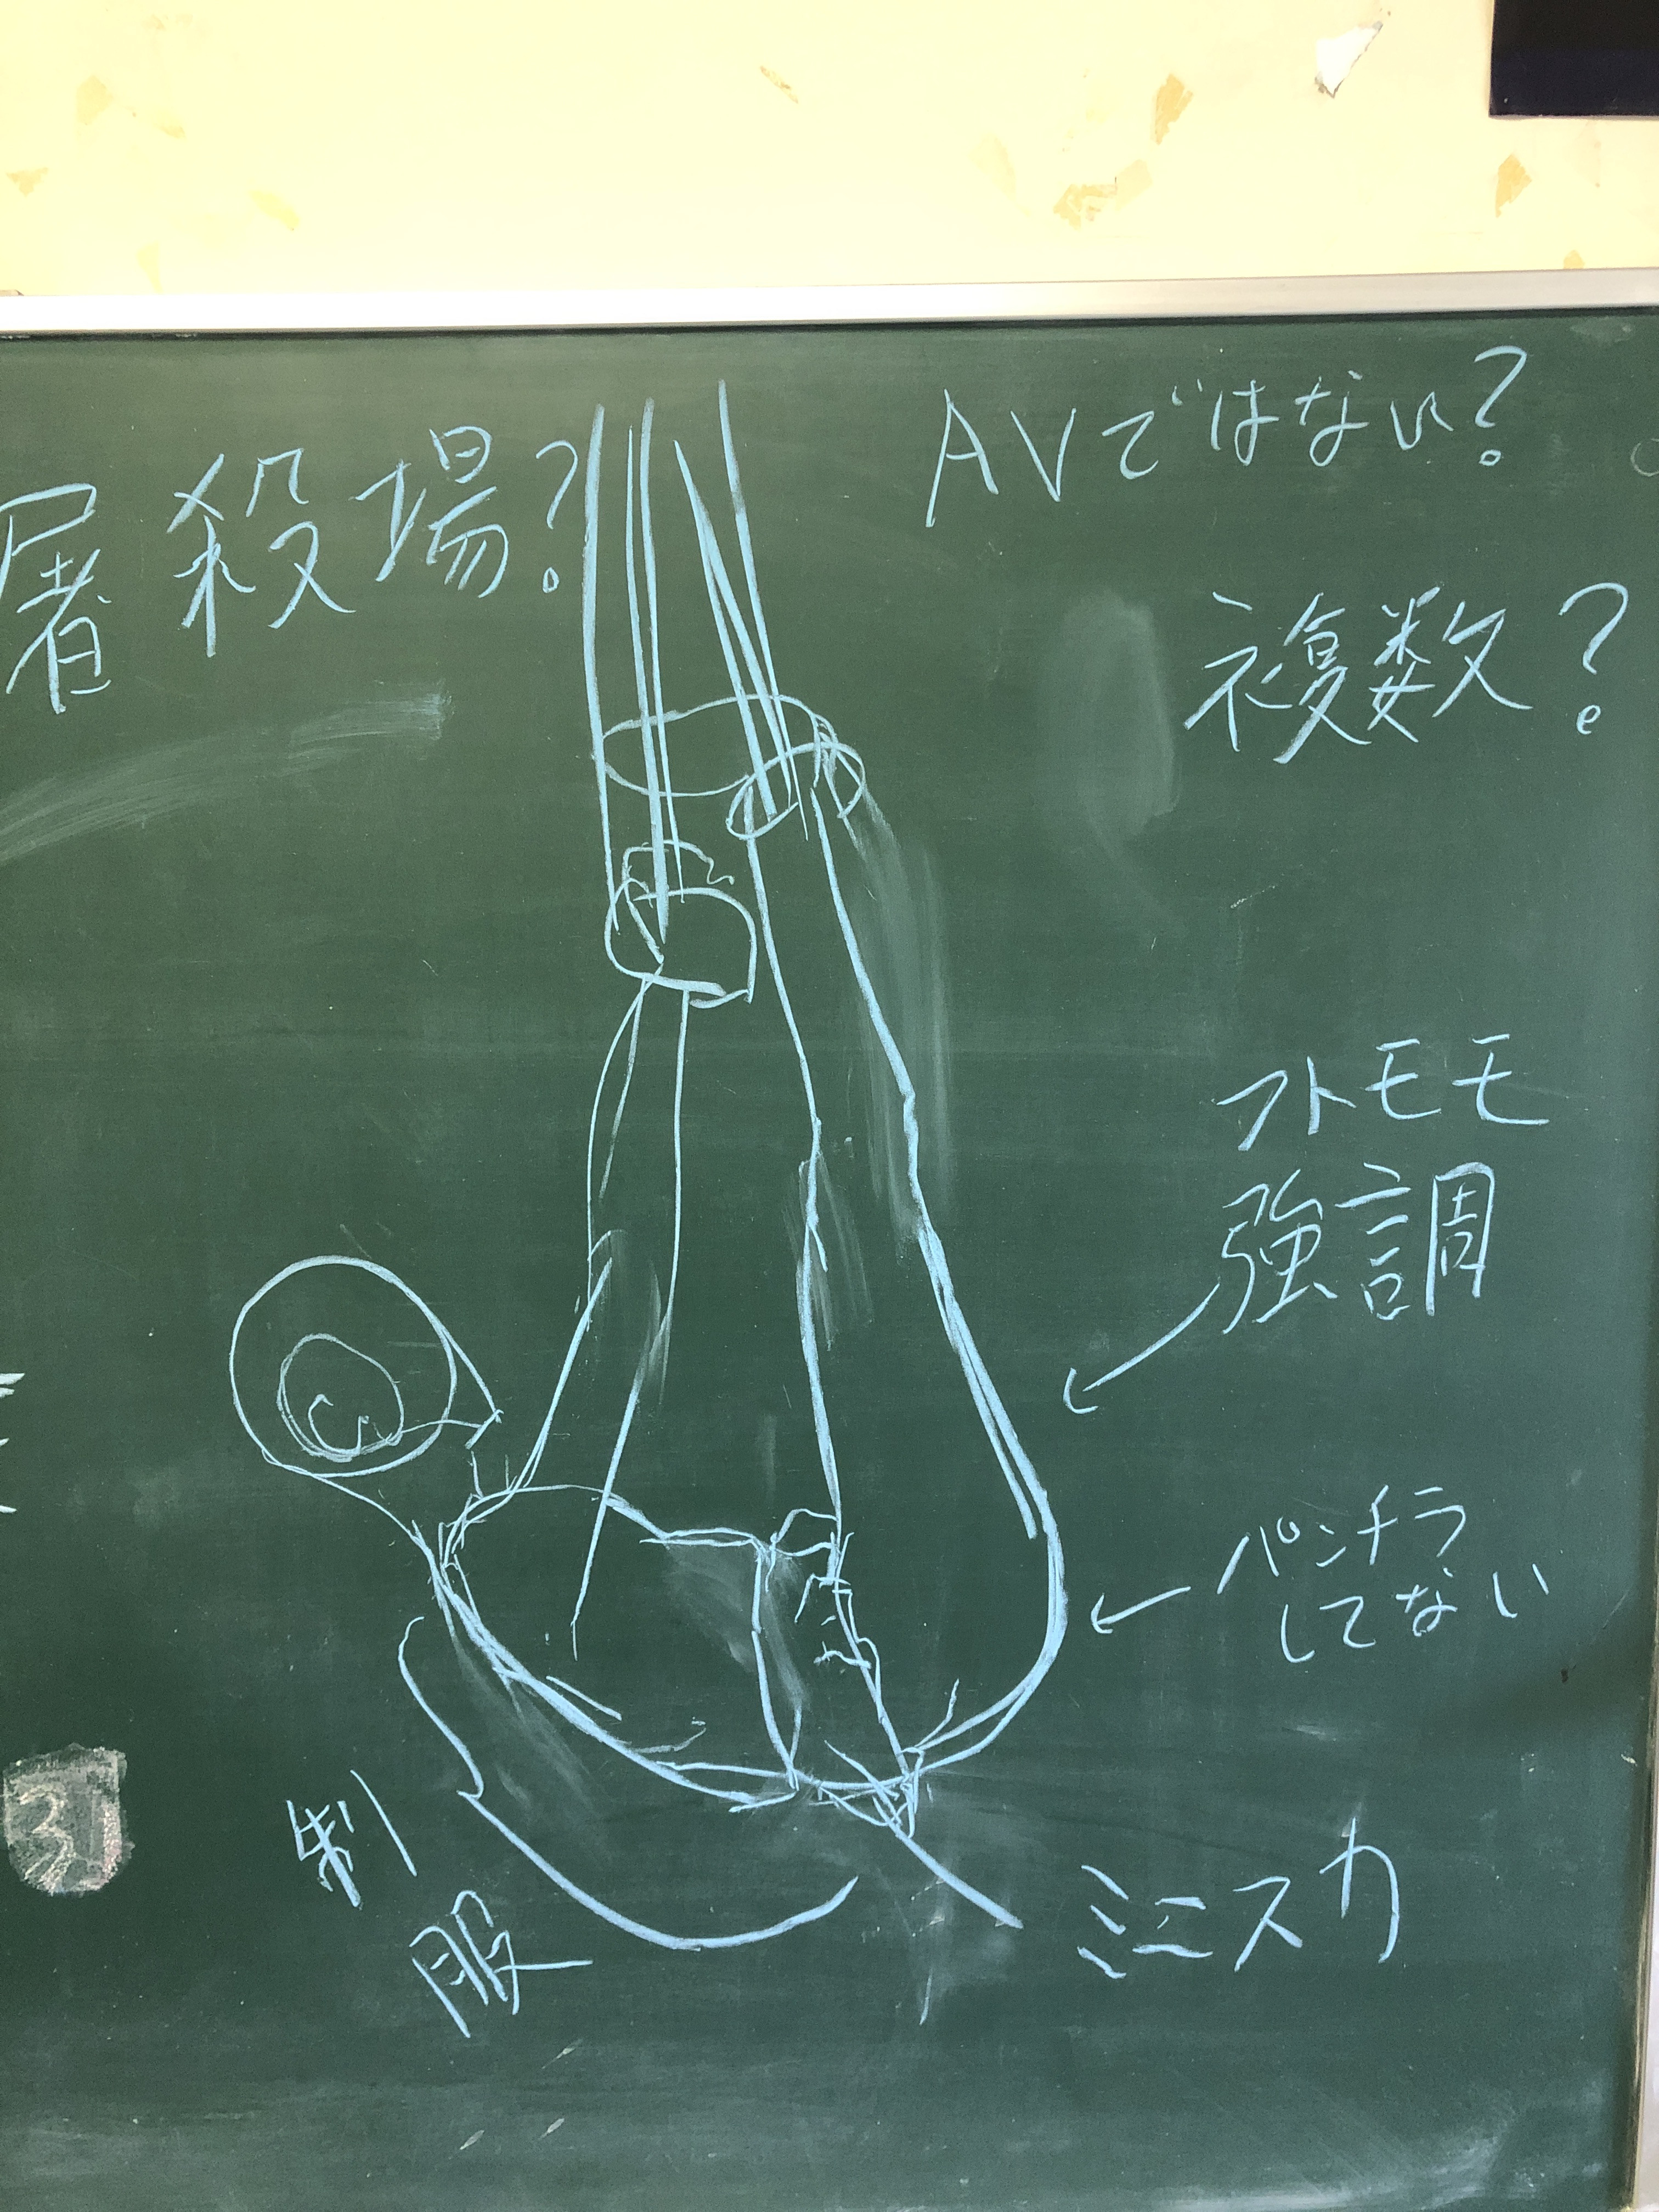 屠殺場?
AVではない?
複数?
フトモモ
強調
パンチラ
してない
制服
ミニスカ